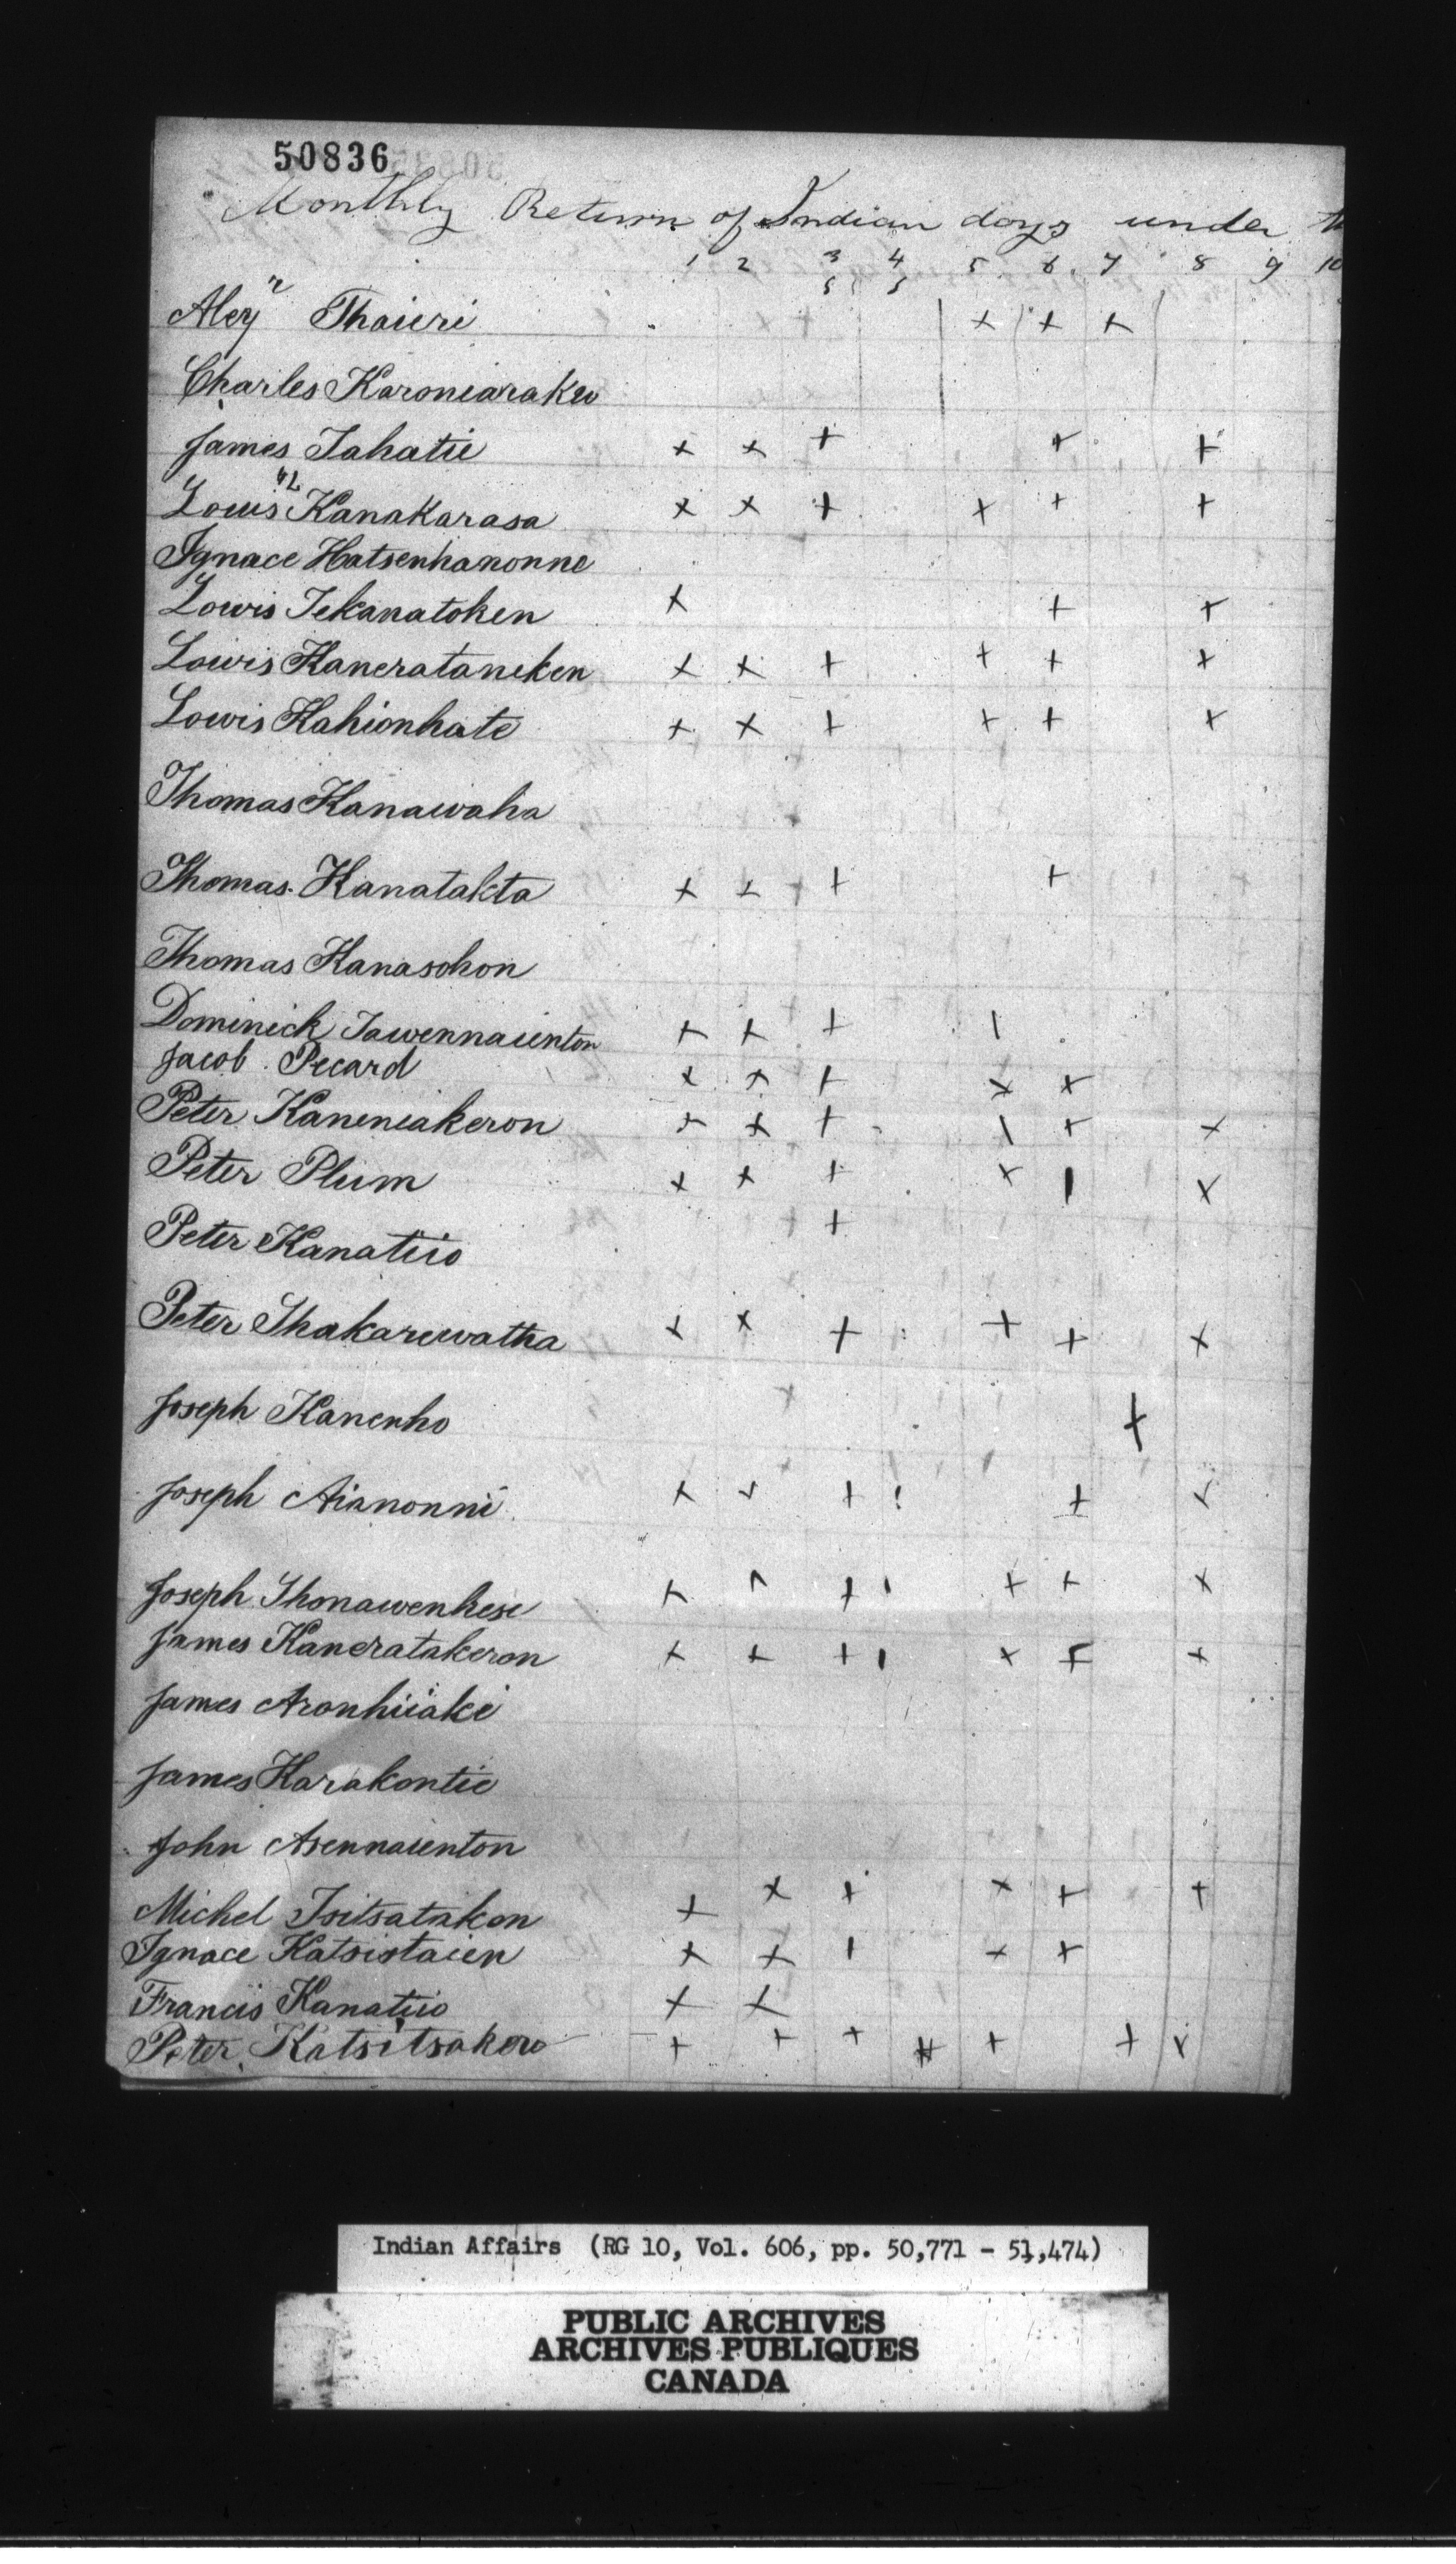 50836
Monthly Return of Indian days under
1 2 3 4 5 6 7 8 9 10
Thaieri x + x + x
Charles Karoniarakew
James Tahatie x x + + +
Louis Kanakarasa x x + x + +
Ignace Hatsenhanonne
Lowis Tekanatoken x + x
Lowis Kanerataneken x x + + + +
Lowis Kahionhate x x + + + x
Thomas Kanawaha
Thomas Kanatakta x x + +
Thomas Kanasohon
Dominick Tawennaienton + + + 1
Jacob Picard x x + x x
Peter Kaneneakeron x x + 1 + x
Peter Plum x x + x 1 x
Peter Kanatiio +
Peter Shakarewatha x x + + + x
Joseph Kanenho +
Joseph Aianonni x x + ! + x
Joseph Thonawenhese x x + 1 + + x
James Kaneratakeron x + + 1 x + x
James Aronhiiake
James Karakontie
John Asennaienton
Michel Tsitsatakon + x + x + +
Ignace Katsistaien x x 1 x x
Francis Kanatiio x x
Peter Katsitsakero + + + # + + x
Indian Affairs (RG 10, Vol. 606, pp. 50,771 - 51,474)
PUBLIC ARCHIVES
ARCHIVES PUBLIQUES
CANADA